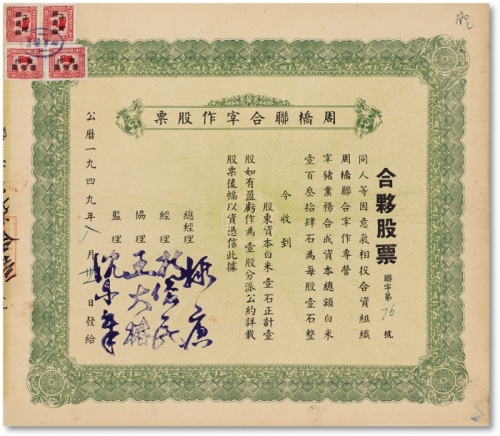 周橋聯合宰作股票
合夥股票
聯字第76號
同人等因意氣相投合資組織
周橋聯合宰作專營
宰豬業務合成資本總額白米
壹百叁拾肆石為每股壹石整
今收到
股東資本白米壹石正計壹
股如有盈虧作為壹股分派公約詳載
股票後幅以資憑信此據
總經理
經理
協理 王大椿
監理
公曆一九四九年八月卅日發給